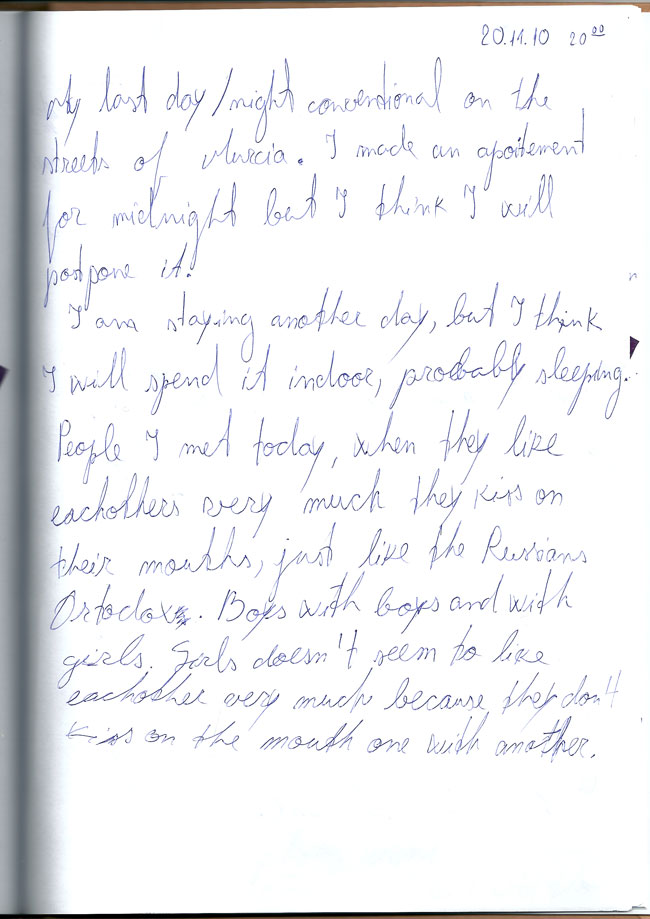 20.11.10 20⁰⁰
My last day/night conventional on the
streets of Murcia. I made an apoitement
for midnight but I think I will
postpone it.
I am staying another day, but I think
I will spend it indoor, probably sleeping.
People I met today, when they like
eachothers very much they kiss on
their mouths, just like the Russians
Ortodox. Boys with boys and with
girls. Girls doesn't seem to like
eachother very much because they don't
kiss on the mouth one with another.